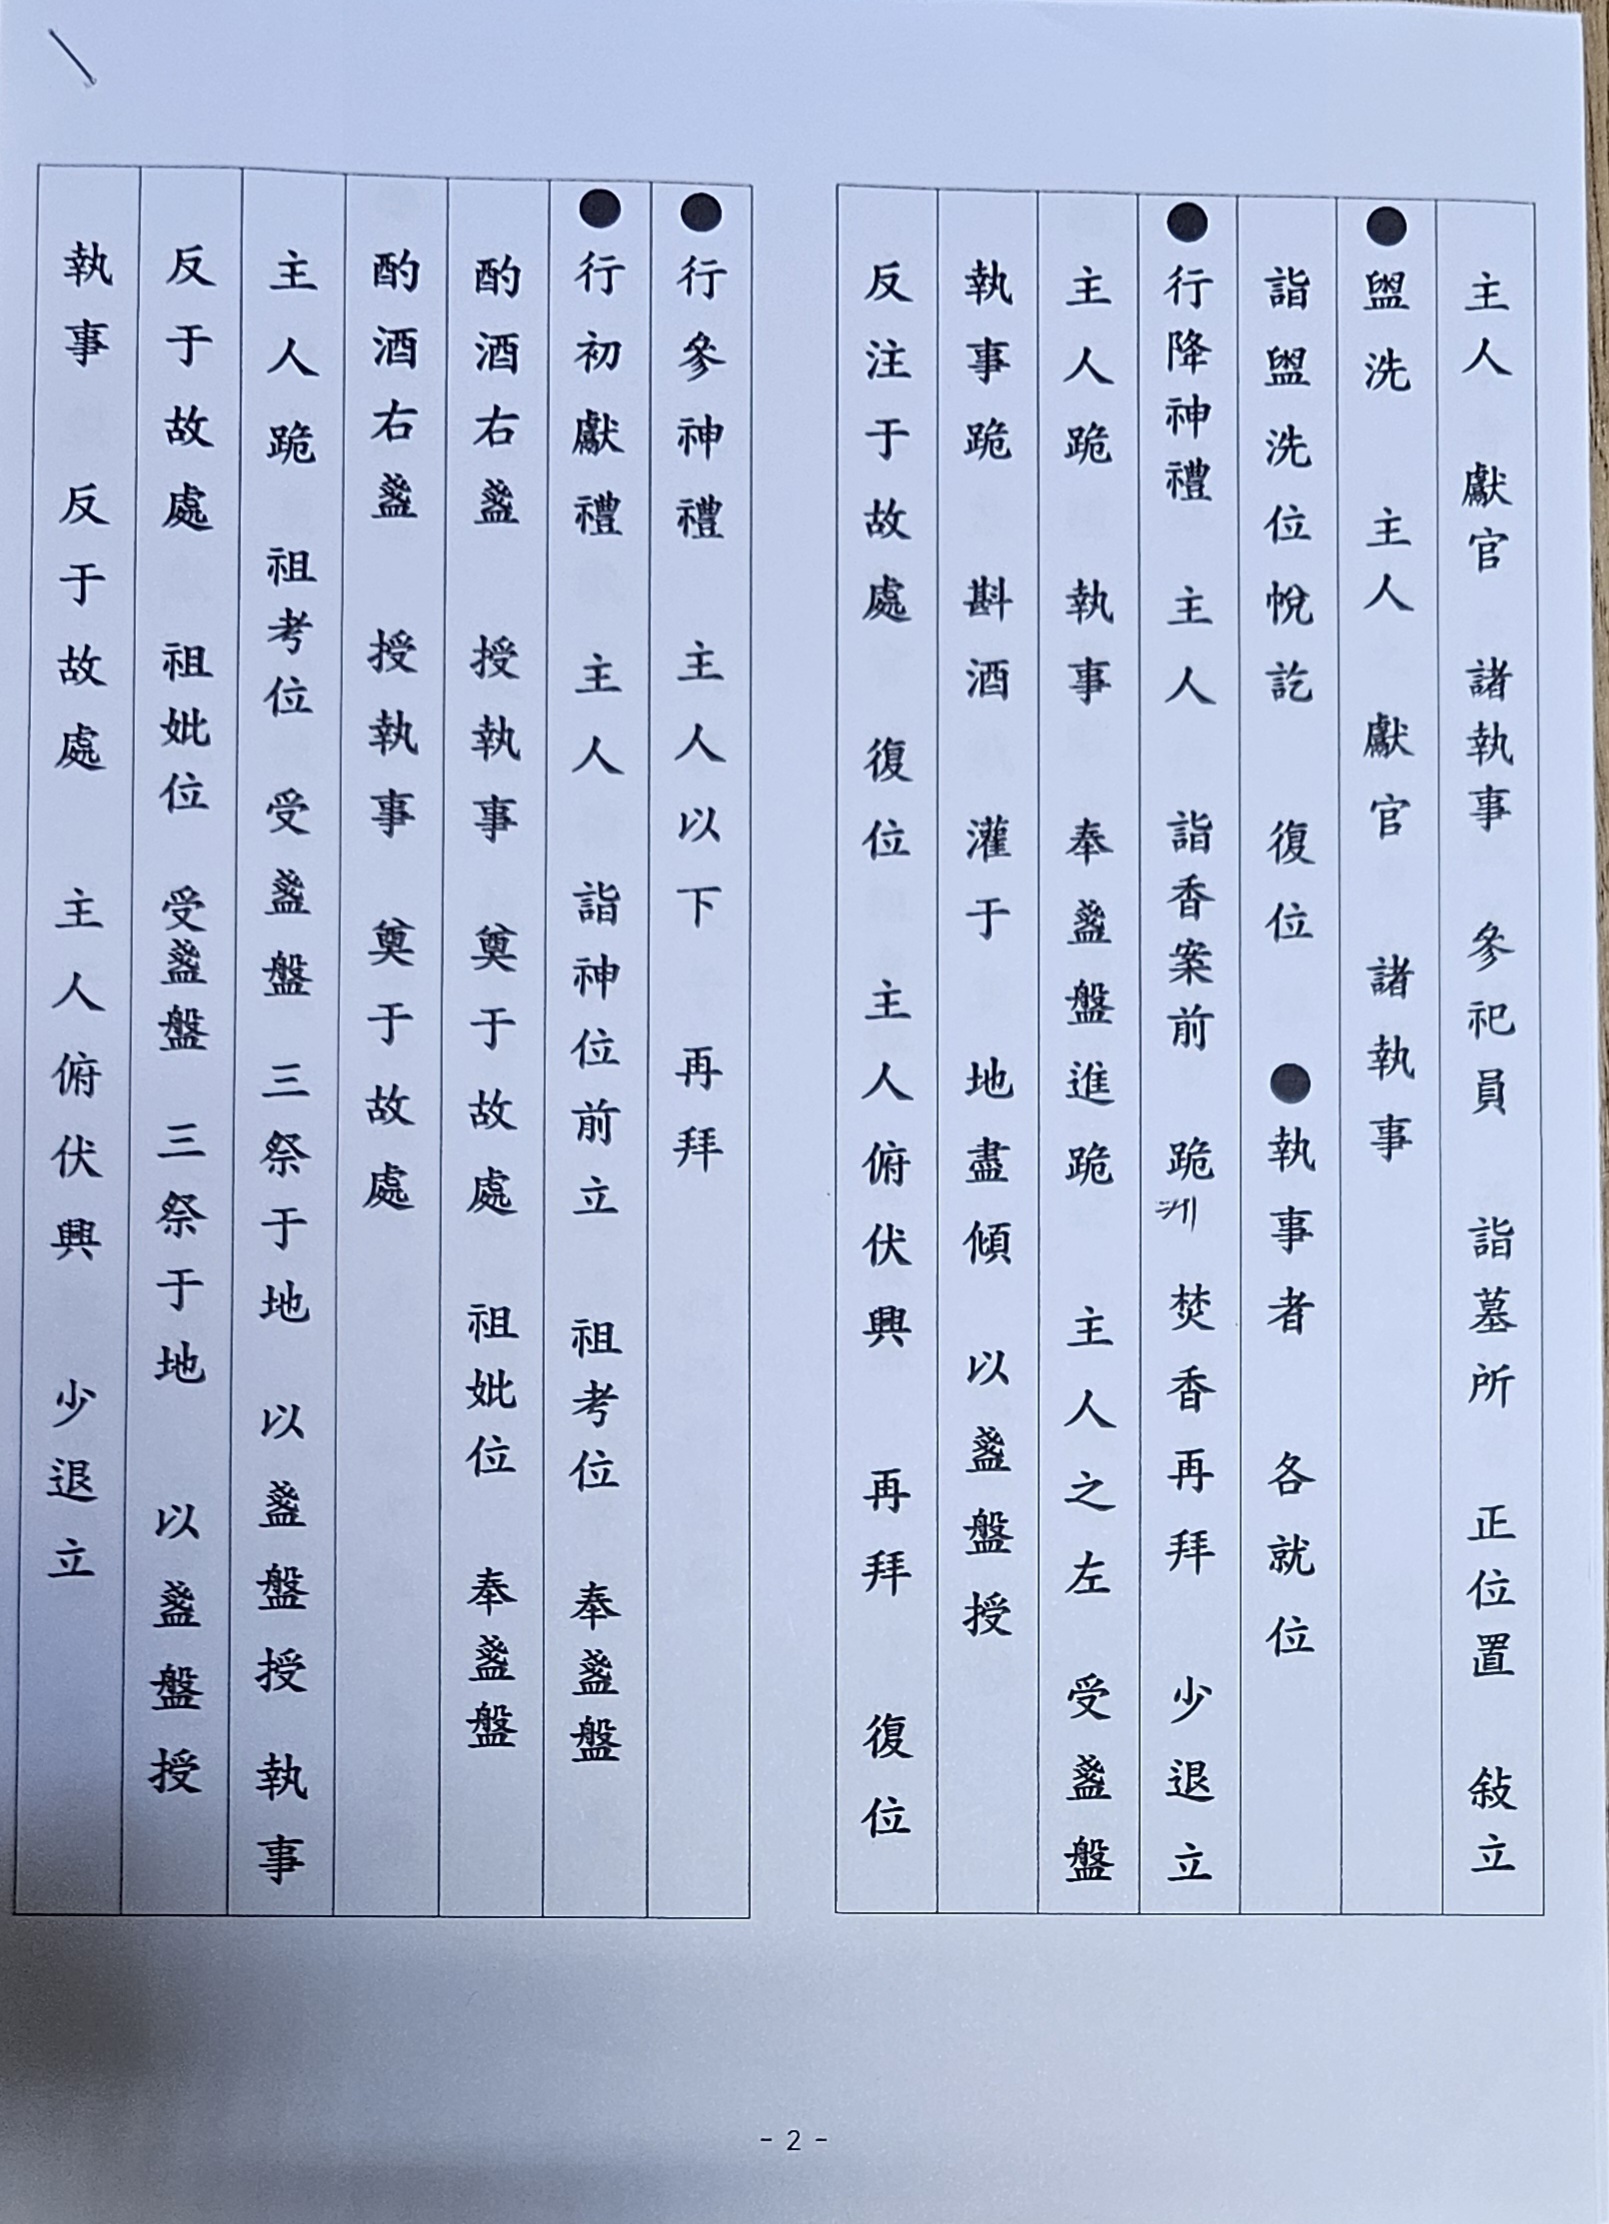 主人 獻官 諸執事 參祀員 詣墓所 正位置 敍立
●盥洗 主人 獻官 諸執事
詣盥洗位帨訖 復位 ●執事者 各就位
●行降神禮 主人 詣香案前 跪 焚香再拜 少退立
궤
主人跪 執事 奉盞盤進跪 主人之左 受盞盤
執事跪 斟酒 灌于 地盡傾 以盞盤授
反注于故處 復位 主人俯伏興 再拜 復位
●行參神禮 主人以下 再拜
●行初獻禮 主人 詣神位前立 祖考位 奉盞盤
酌酒右盞 授執事 奠于故處 祖妣位 奉盞盤
酌酒右盞 授執事 奠于故處
主人跪 祖考位 受盞盤 三祭于地 以盞盤授 執事
反于故處 祖妣位 受盞盤 三祭于地 以盞盤授
執事 反于故處 主人俯伏興 少退立
- 2 -